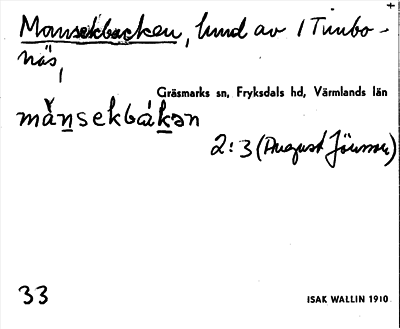 Monsekbacken, lund av 1 Timbo-
näs,
Gräsmarks sn, Fryksdals hd, Värmlands län
mån̲sekbák̲ən
2:3 (August Jönsson)
33
ISAK WALLIN 1910